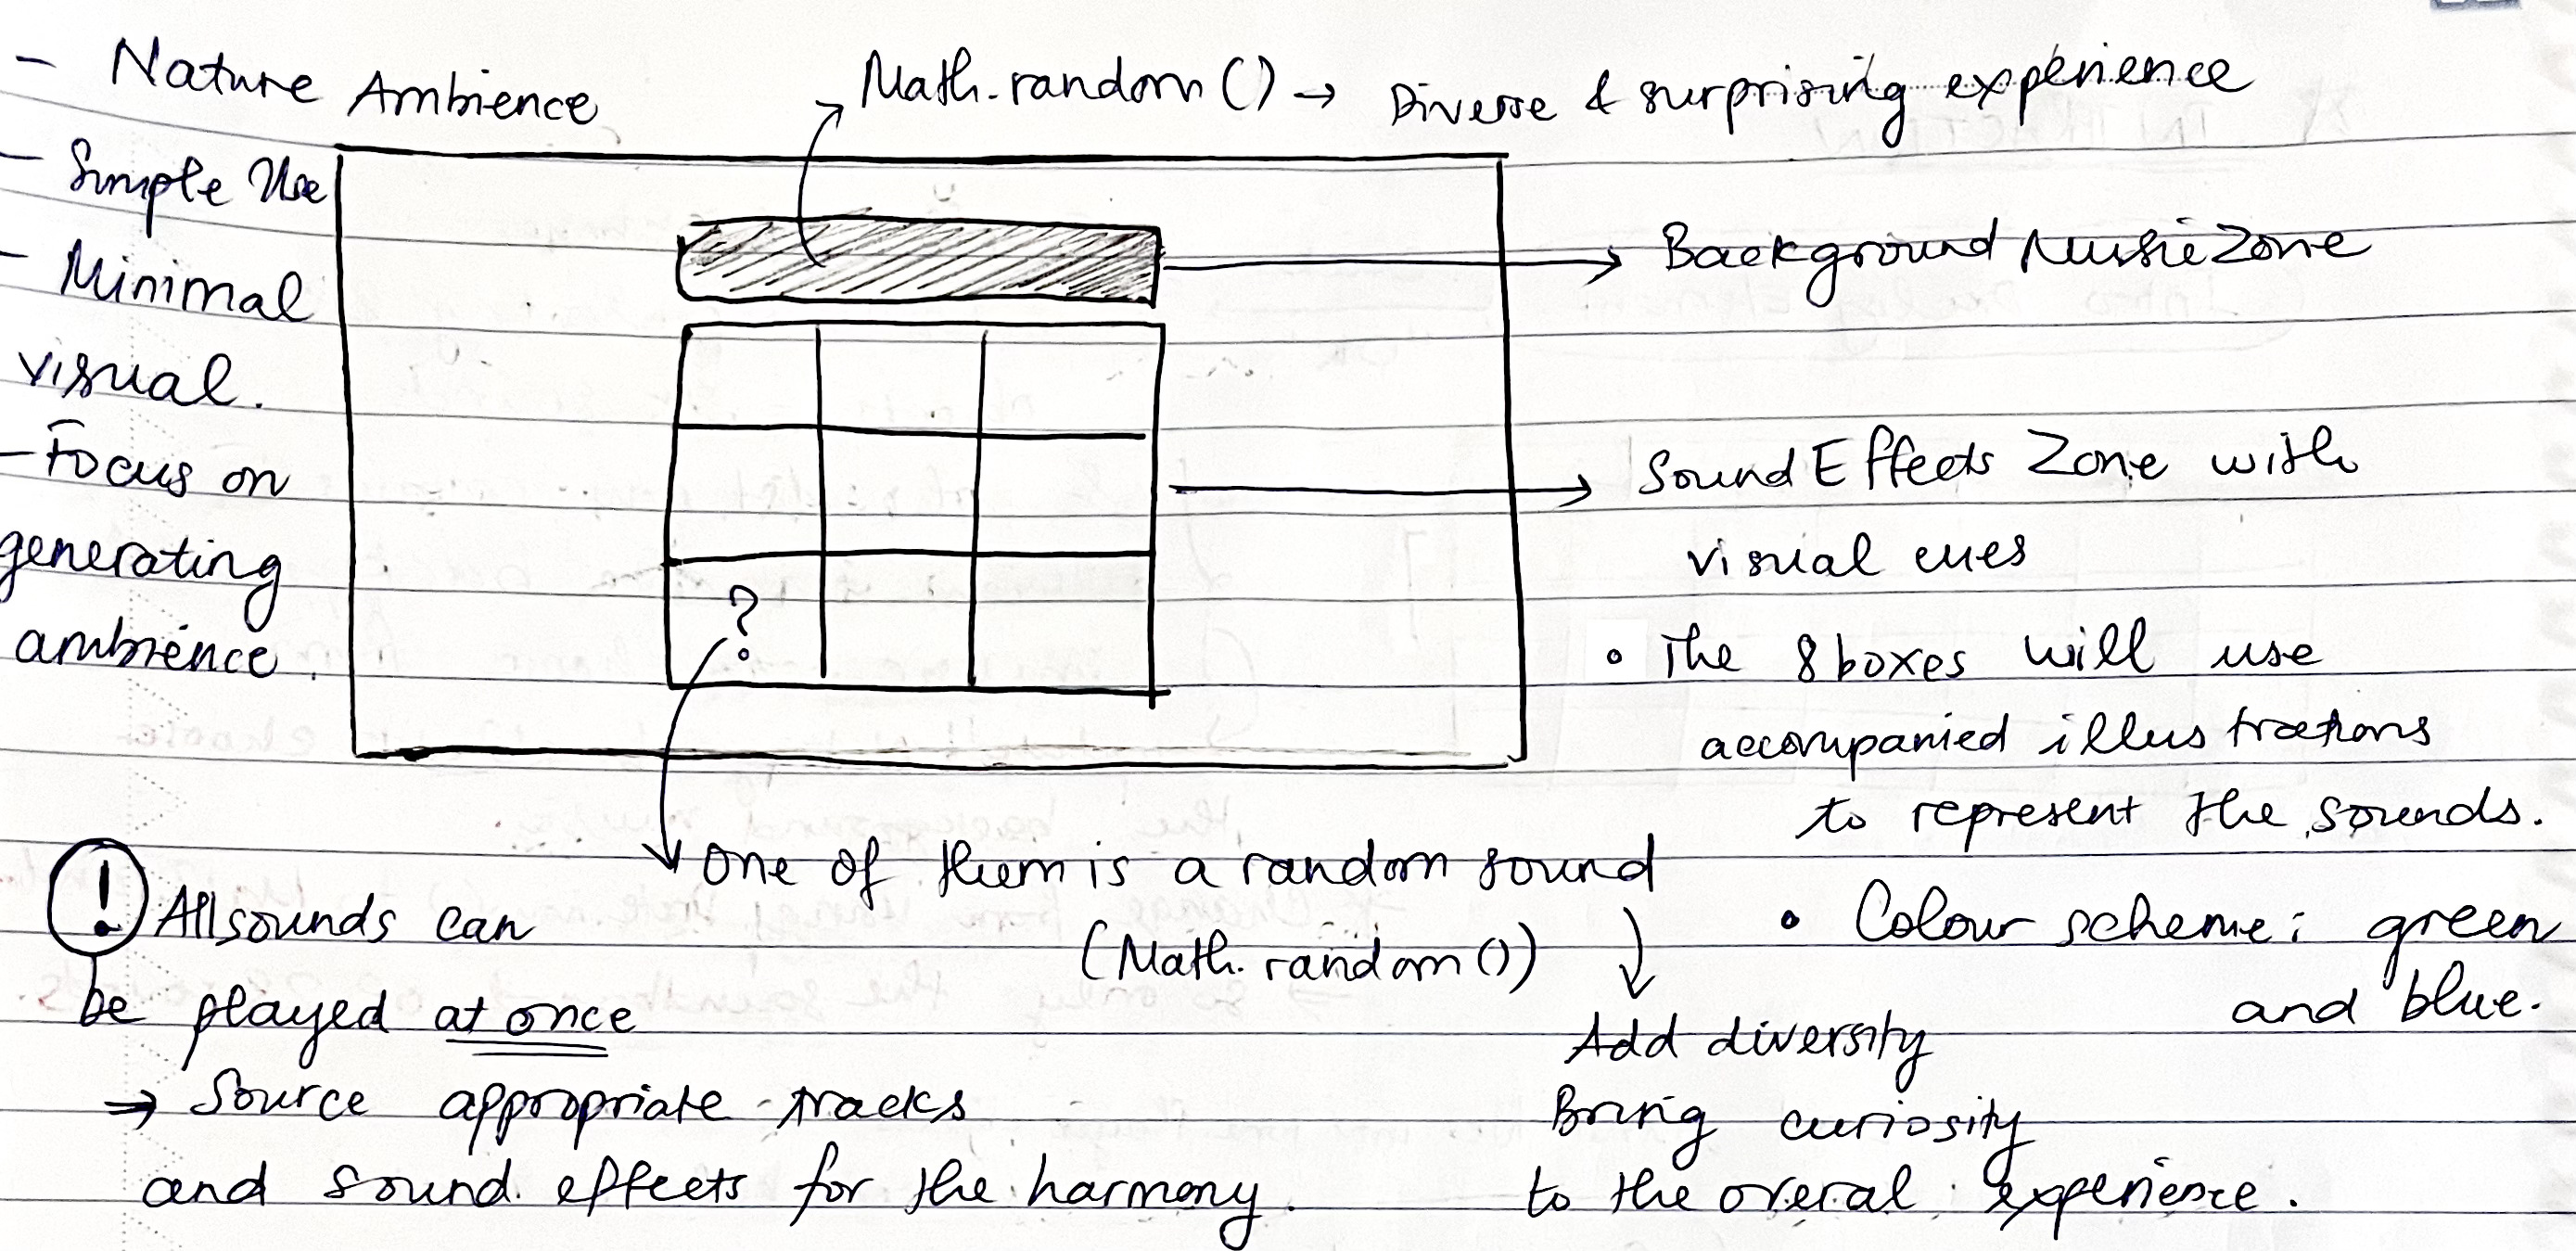 - Nature Ambience
- Simple Use
- Minimal
visual.
- Focus on
generating
ambience.
Math.random() → Diverse & surprising experience
→ Background Music Zone
→ Sound Effects Zone with
visual cues
• The 8 boxes will use
accompanied illustrations
to represent the sounds.
• Colour scheme: green
and blue.
?
One of them is a random sound
(Math.random())
Add diversity
Bring curiosity
to the overal experience.
! All sounds can
be played at once
→ Source appropriate tracks
and sound effects for the harmony.